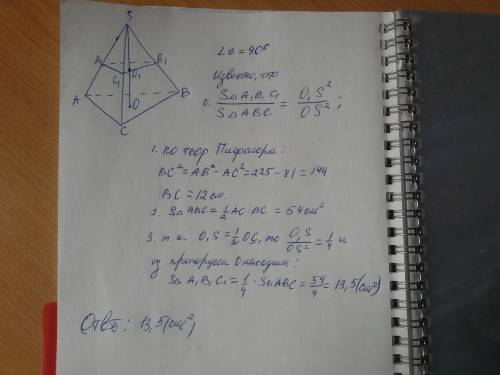 S
A₁ B₁
C₁ O₁
A O B
C
∠C = 90°
Известно, что
0. S△A₁B₁C₁ / S△ABC = O₁S² / OS² ;
1. по теор Пифагора:
BC² = AB² - AC² = 225 - 81 = 144
BC = 12 см.
2. S△ABC = 1/2 AC · BC = 54 см²
3. т.к. O₁S = 1/2 OS, то O₁S / OS² = 1/4 и
из пропорции 0 находим:
S△A₁B₁C₁ = 1/4 · S△ABC = 54/4 = 13,5 (cm²)
Ответ: 13,5 (cm²)